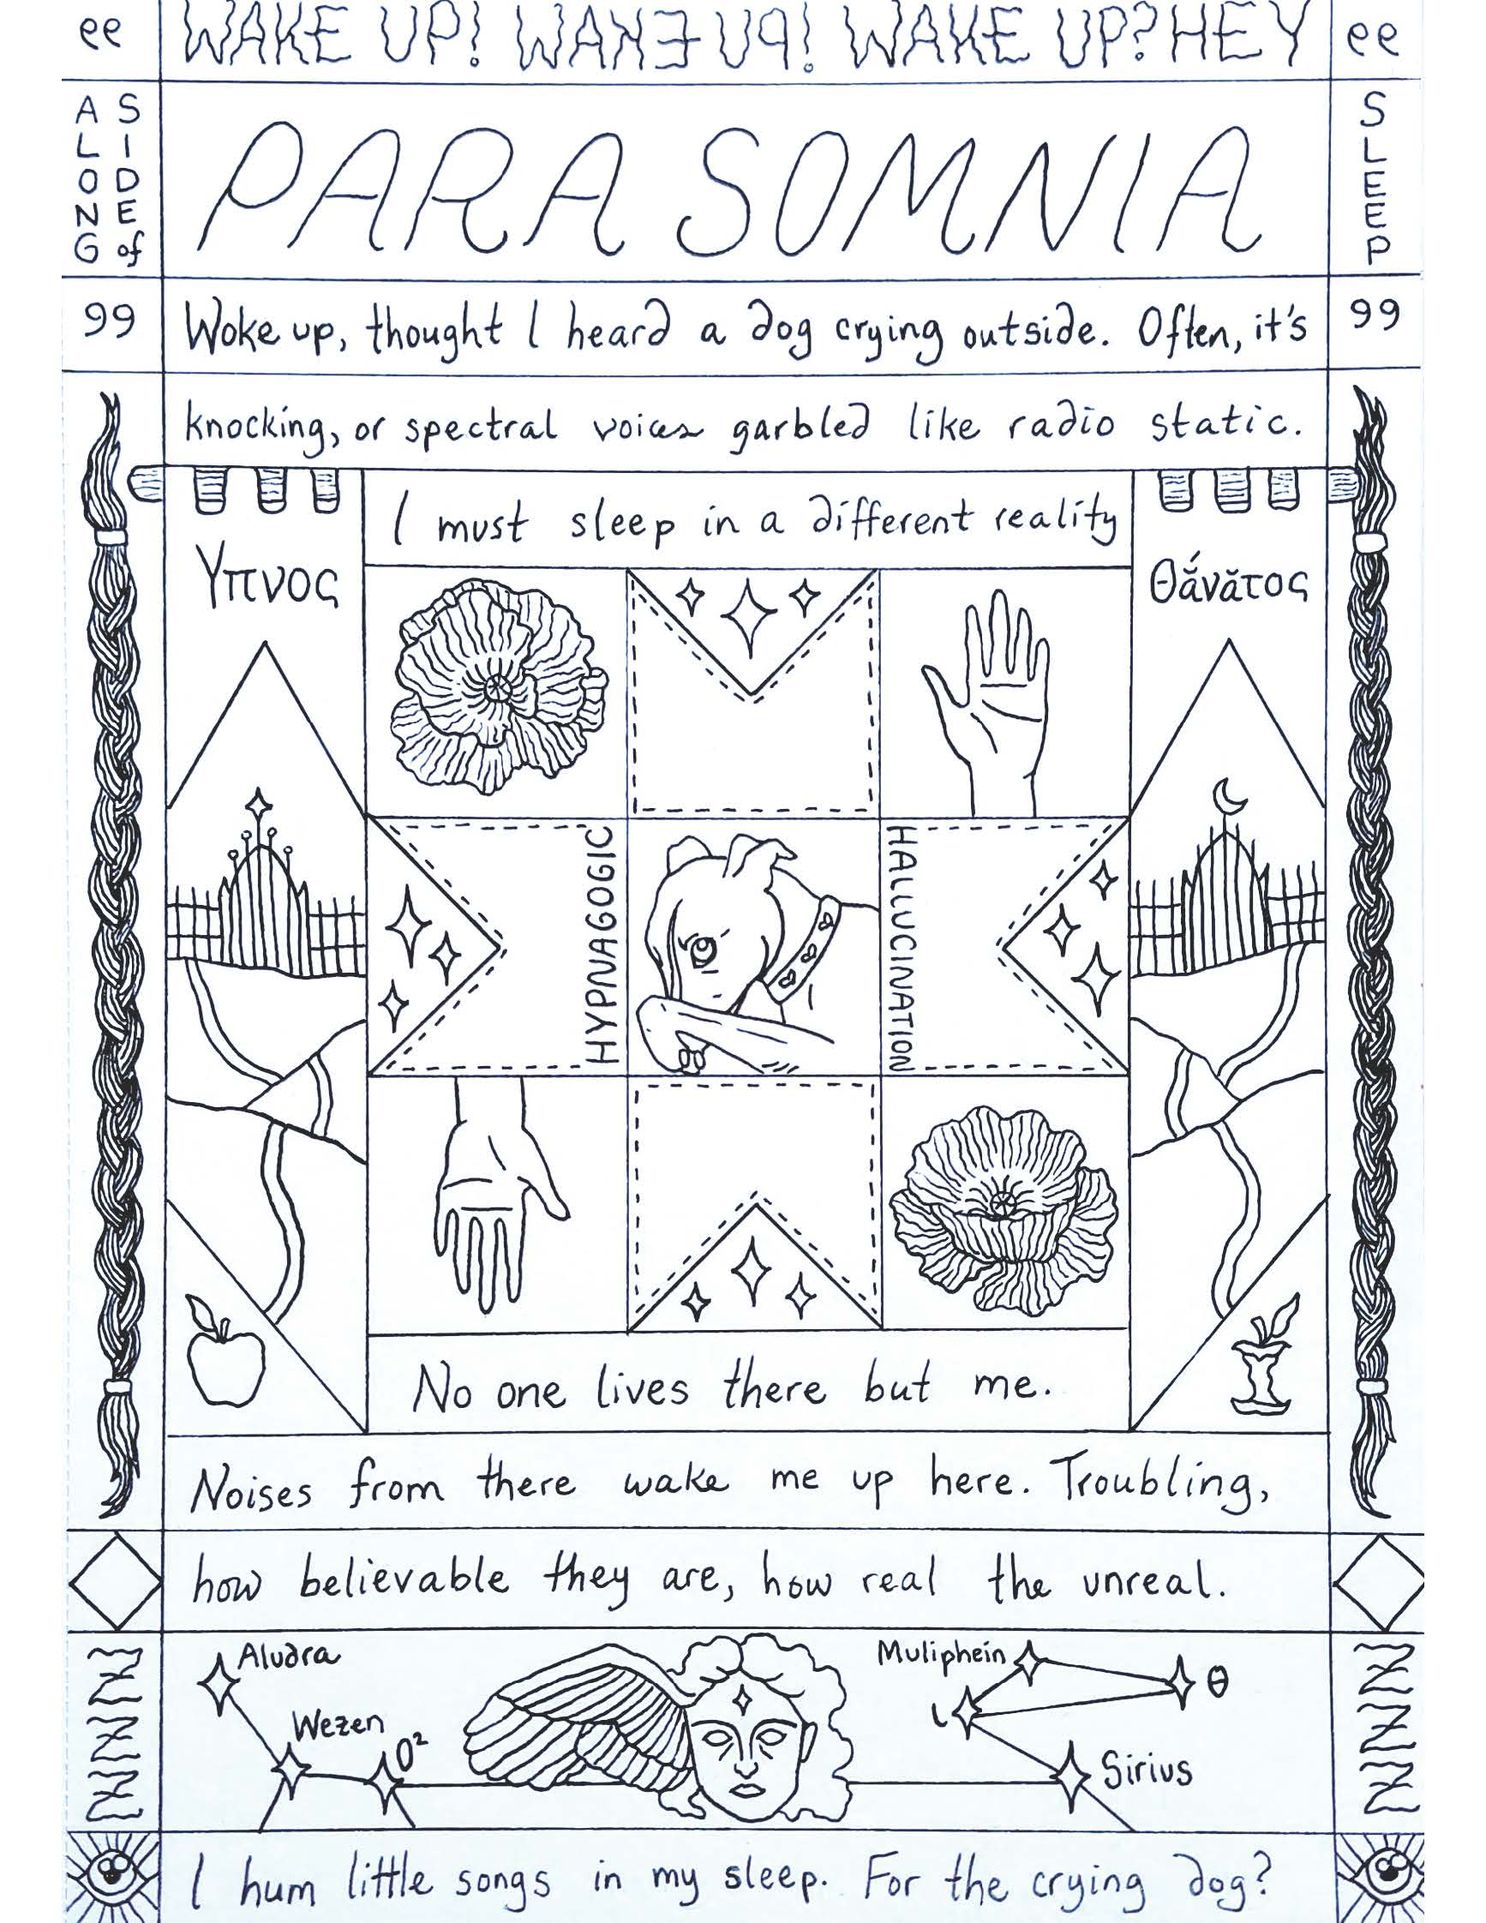 ee WAKE UP! WAKE UP! WAKE UP? HEY ee
ALONG SIDE of
PARA SOMNIA
SLEEP
99 Woke up, thought I heard a dog crying outside. Often, it's 99
knocking, or spectral voices garbled like radio static.
I must sleep in a different reality
Υπνος
Θᾰ́νᾰτος
HYPNAGOGIC
HALLUCINATION
No one lives there but me.
Noises from there wake me up here. Troubling,
how believable they are, how real the unreal.
ZZZ
Aludra
Wezen
O²
Muliphein
θ
ι
Sirius
ZZZ
I hum little songs in my sleep. For the crying dog?